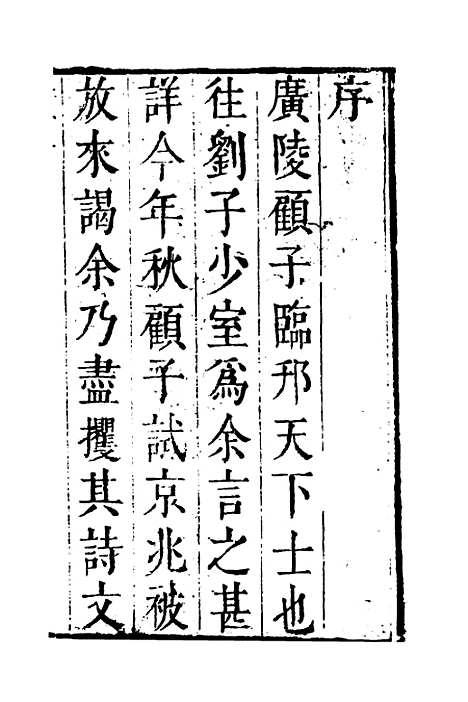 序
廣陵顧子臨邗天下士也
往劉子少室爲余言之甚
詳今年秋顧子試京兆被
放來謁余乃盡攫其詩文